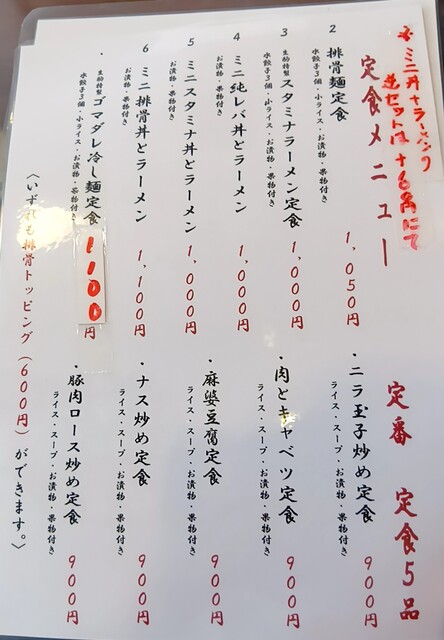 ★ミニ丼+ラーメンの
逆セットは+60円にて
定食メニュー
2 排骨麺定食
水餃子3個・お漬物・果物付き
1,050円
3 生姉特製 スタミナラーメン定食
水餃子3個・小ライス・お漬物・果物付き
1,000円
4 ミニ純レバ丼とラーメン
お漬物・果物付き
1,000円
5 ミニスタミナ丼とラーメン
お漬物・果物付き
1,000円
6 ミニ排骨丼とラーメン
お漬物・果物付き
1,100円
・ ゴマダレ冷し麺定食
水餃子3個・小ライス・お漬物・果物付き
1100円
定番 定食5品
・ニラ玉子炒め定食
ライス・スープ・お漬物・果物付き
900円
・肉とキャベツ定食
ライス・スープ・お漬物・果物付き
900円
・麻婆豆腐定食
ライス・スープ・お漬物・果物付き
900円
・ナス炒め定食
ライス・スープ・お漬物・果物付き
900円
・豚肉ロース炒め定食
ライス・スープ・お漬物・果物付き
900円
〈いずれも排骨トッピング(600円)ができます。〉